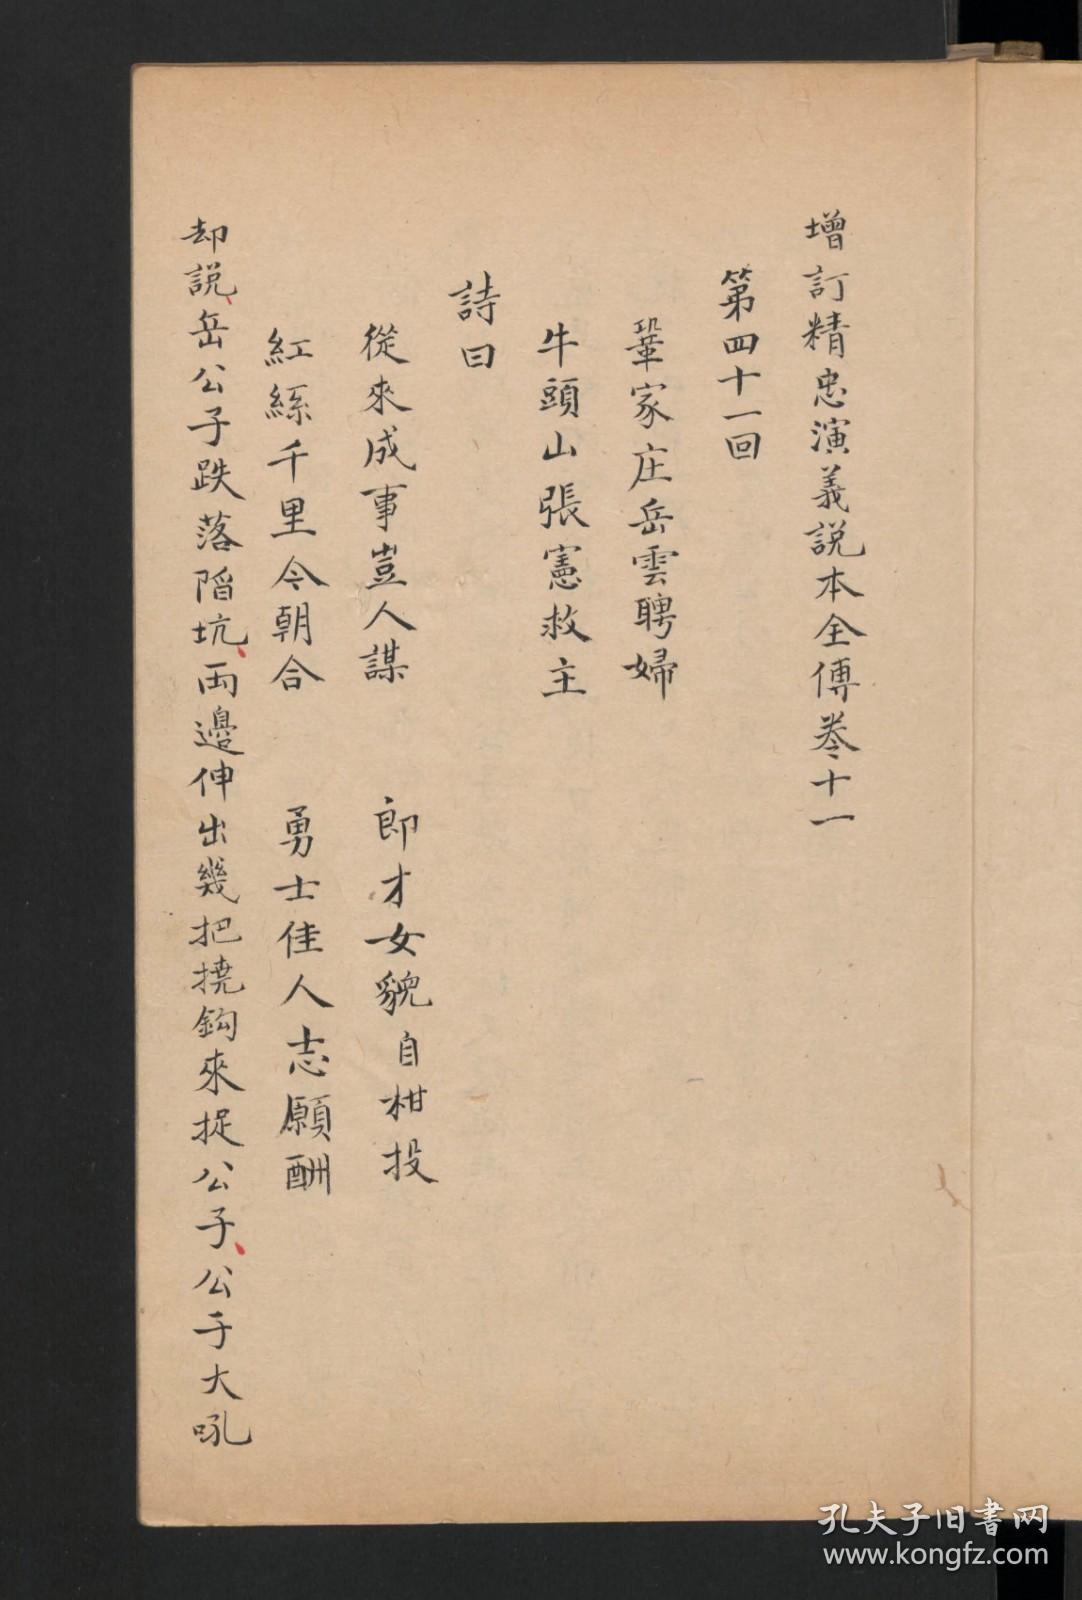 增訂精忠演義説本全傳卷十一
第四十一回
鞏家庄岳雲聘婦
牛頭山張憲救主
詩曰
從來成事豈人謀　郎才女貌自相投
紅絲千里今朝合　勇士佳人志願酬
却説、岳公子跌落陷坑、両邊伸出幾把撓鈎來捉公子、公子大吼
孔夫子旧书网
www.kongfz.com